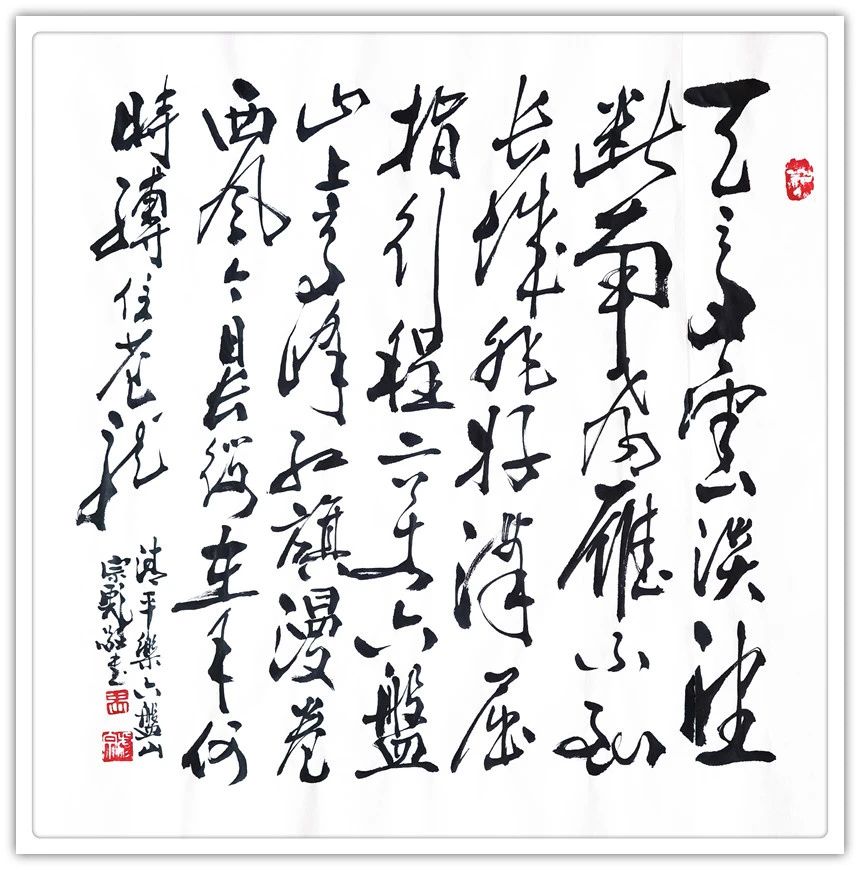 天高雲淡望
断南飛雁不到
长城非好漢屈
指行程二万六盤
山上高峰红旗漫卷
西风今日长缨在手何
時縛住苍龙
清平樂六盤山
宗彪敬書